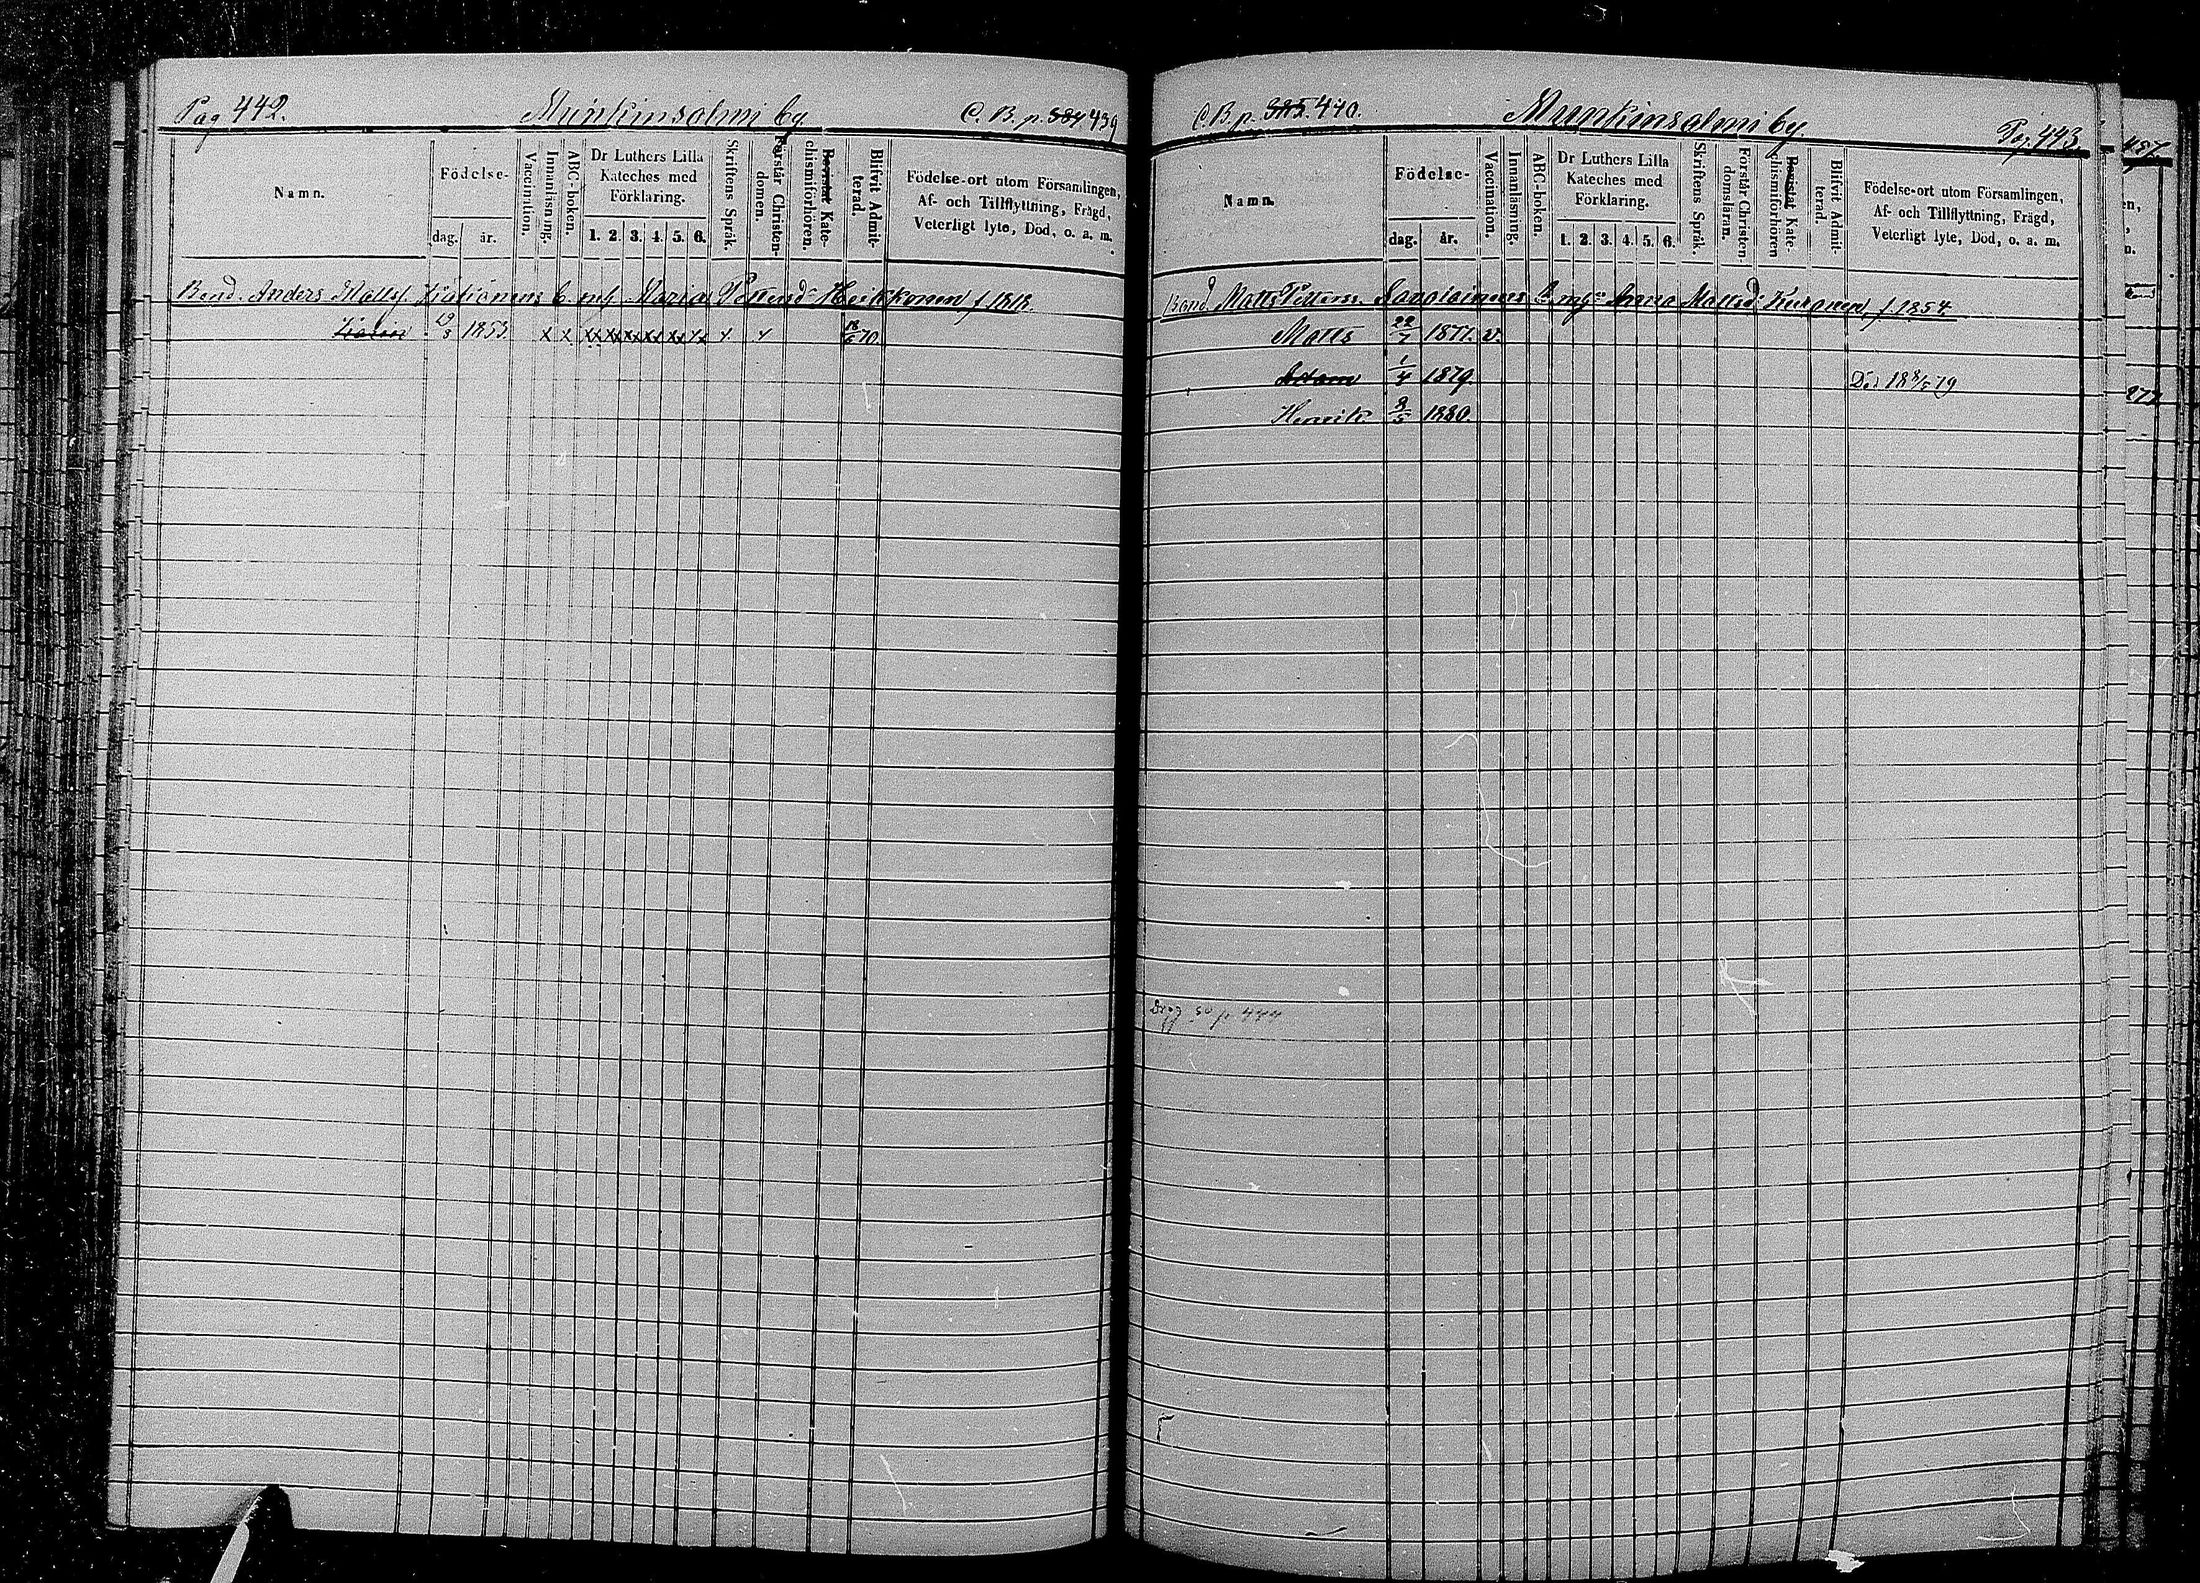 Pag 442. Munkinsalmi by C. B. p. 384 439
Namn.
Födelse-
dag. år.
Vaccination.
Innanläsning.
ABC-boken.
Dr Luthers Lilla
Kateches med
Förklaring.
1. 2. 3. 4. 5. 6.
Skriftens Språk.
Förstår Christen-
domen.
Bevistat Kate-
chismiförhören.
Blifvit Admit-
terad.
Födelse-ort utom Församlingen,
Af- och Tillflyttning, Frägd,
Veterligt lyte, Död, o. a. m.
Bond. Anders Matts. o. mg. Maria Pettersd. Heikkonen f 1818.
19/3 1853. x x xx xx xx xx xx x x x 18/6 70.
C. B. p. 385. 440. Munkinsalmi by Pag. 443.
Namn.
Födelse-
dag. år.
Vaccination.
Innanläsning.
ABC-boken.
Dr Luthers Lilla
Kateches med
Förklaring.
1. 2. 3. 4. 5. 6.
Skriftens Språk.
Förstår Christen-
domsläran.
Bevistat Kate-
chismiförhören
Blifvit Admit-
terad.
Födelse-ort utom Församlingen,
Af- och Tillflyttning, Frägd,
Veterligt lyte, Död, o. a. m.
Bond. Matts Petterss. Savolainens o. mg. Anna Mattsd. Kuronen, f. 1854.
Matts 22/7 1877. v.
Adam 1/4 1879. Död 18 8/5 79
Henrik 8/5 1880.
444